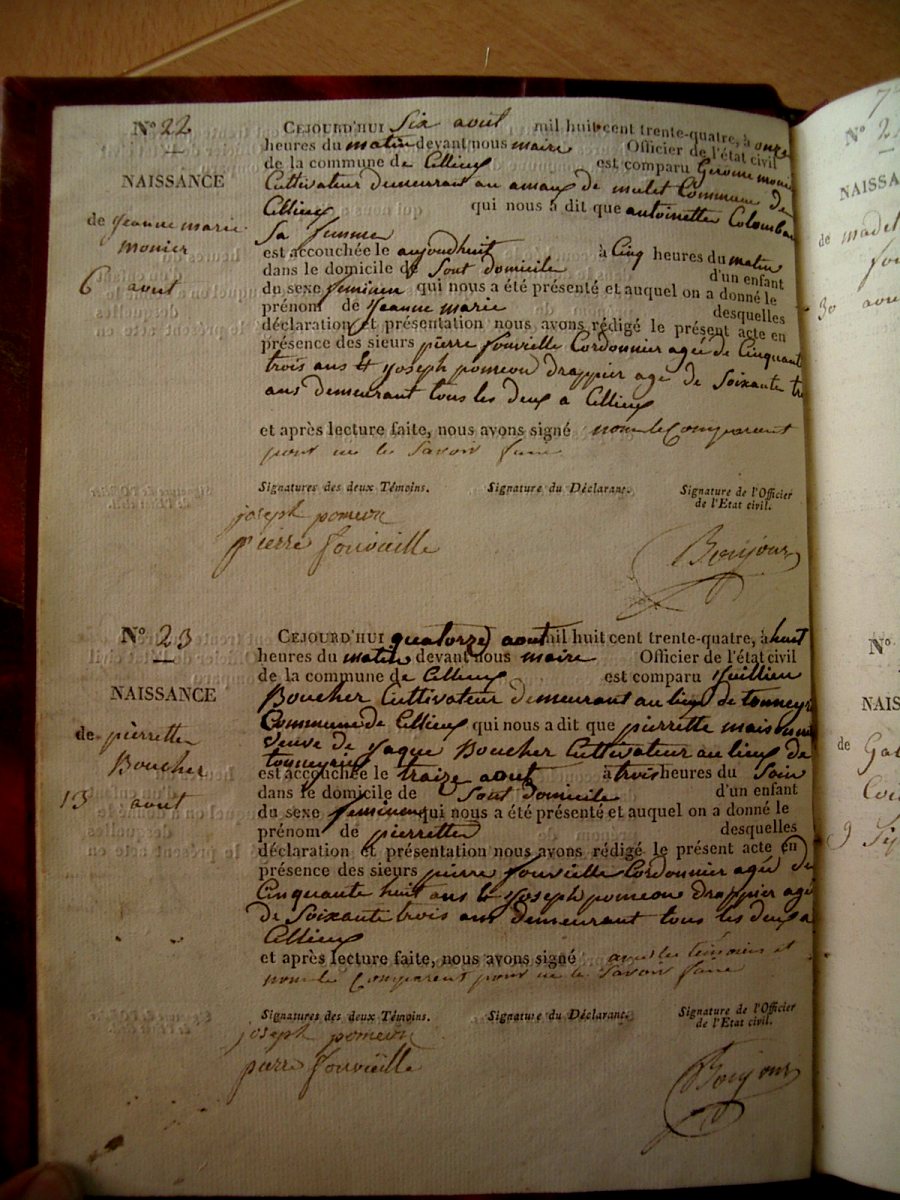 Nº 22
NAISSANCE
de Jeanne marie
monier
6 aout
CEJOURD'HUI Six aout mil huit cent trente-quatre, à onze
heures du matin devant nous maire Officier de l'état civil
de la commune de Cellieux est comparu Gerome monier
Cultivateur demeurant au de mulet Commune de
Cellieux qui nous a dit que antoinette Colomban
Sa femme
est accouchée le aujoudhuit à Cinq heures du matin
dans le domicile de Sont domicile d'un enfant
du sexe feminen qui nous a été présenté et auquel on a donné le
prénom de Jeanne marie desquelles
déclaration et présentation nous avons rédigé le présent acte en
présence des sieurs pierre fonvieille Cordonnier agée de Cinquante
trois ans & joseph pomeon drappier age de Soixante tr
ans demeurant tous les deux a Cellieux
et après lecture faite, nous avons signé nom le Comparant
pour ne le Savoir faire
Signatures des deux Témoins. Signature du Déclarant. Signature de l'Officier
de l'Etat civil.
joseph pomeon
pierre fonvieille
Bonjour
Nº 23
NAISSANCE
de pierrette
Boucher
13 aout
CEJOURD'HUI quatorze aout mil huit cent trente-quatre, à huit
heures du matin devant nous maire Officier de l'état civil
de la commune de Cellieux est comparu Juillien
Boucher Cultivateur demeurant au lieux de tonneyrieux
Commune de Cellieux qui nous a dit que pierrette
veuve de Jaque Boucher Cultivateur au lieux de
tonneyrieux
est accouchée le traize aout à trois heures du Soir
dans le domicile de Sont domicile d'un enfant
du sexe feminen qui nous a été présenté et auquel on a donné le
prénom de pierrette desquelles
déclaration et présentation nous avons rédigé le présent acte en
présence des sieurs pierre fonvieille Cordonnier agée de
Cinquante huit ans & joseph pomeon drappier age
de Soixante trois ans demeurant tous les deux a
Cellieux
et après lecture faite, nous avons signé avec les témoins et
nom le Comparent pour ne le Savoir faire
Signatures des deux Témoins. Signature du Déclarant. Signature de l'Officier
de l'Etat civil.
joseph pomeon
pierre fonvieille
Bonjour
Nº 2
NAISSA
de madel
30
Nº
NAIS
de
9